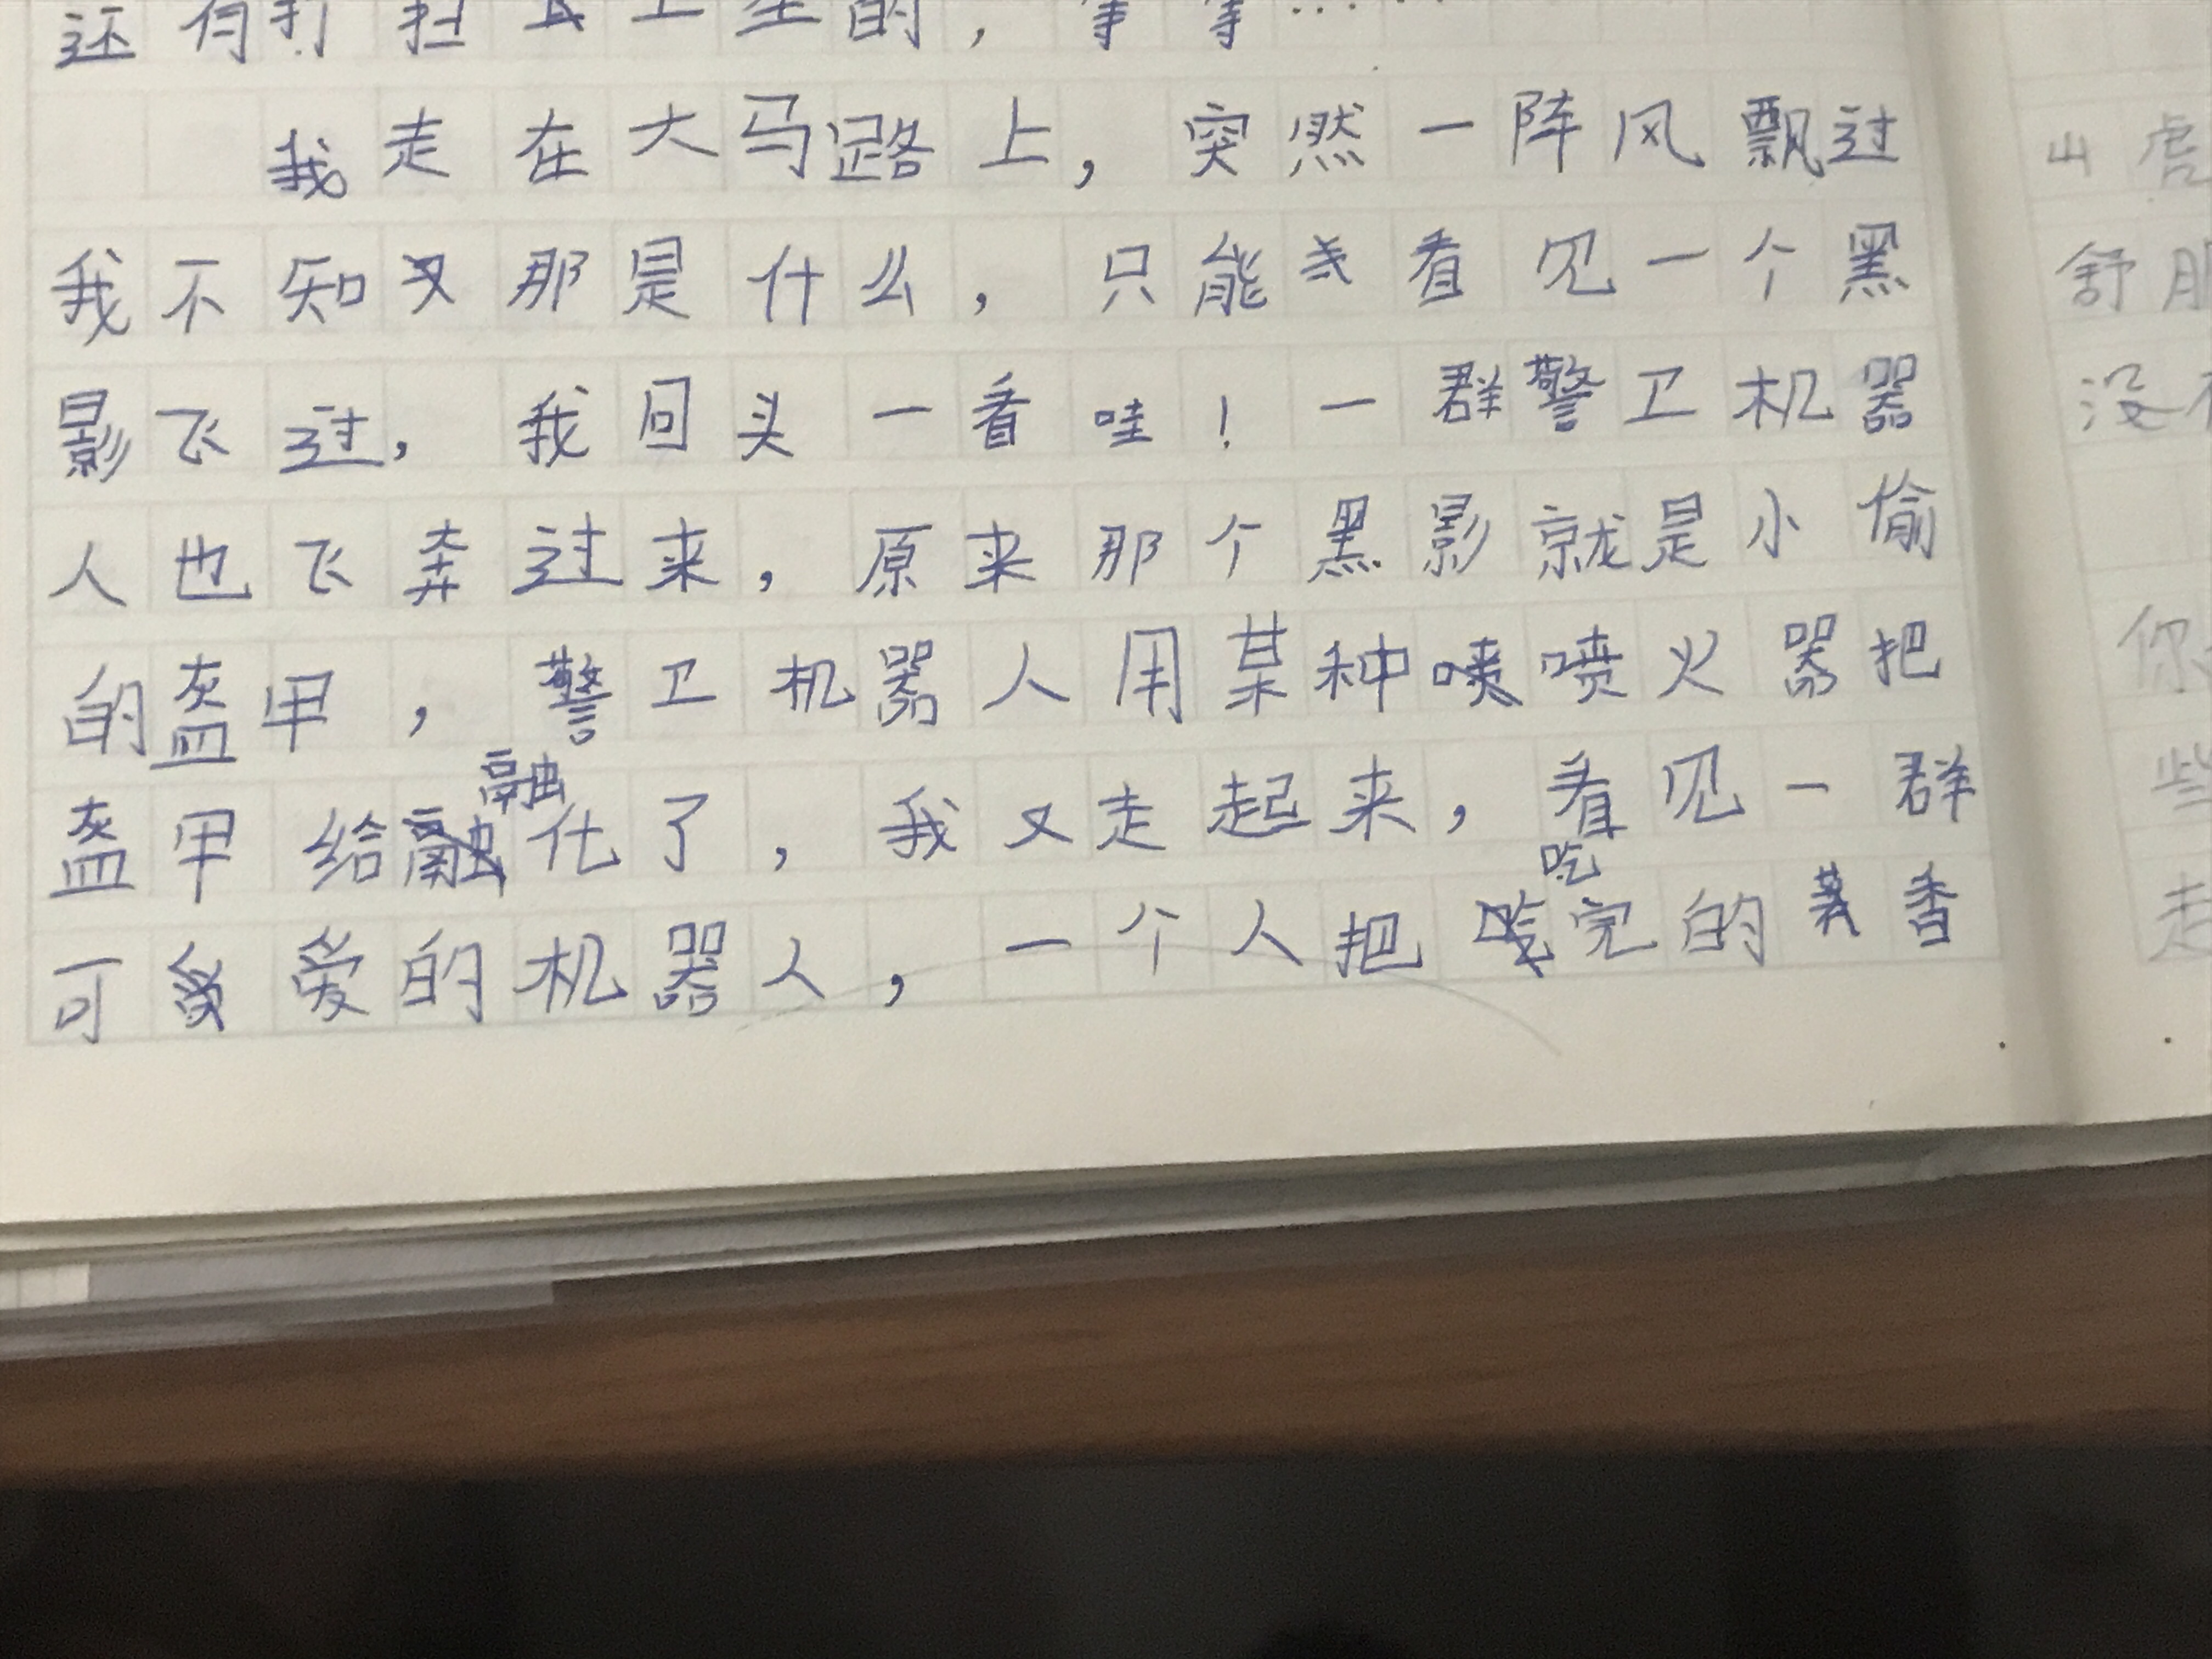 还有打扫卫生的，等等……
我走在大马路上，突然一阵风飘过
我不知那是什么，只能看见一个黑
影飞过，我回头一看哇！一群警卫机器
人也飞奔过来，原来那个黑影就是小偷
的盔甲，警卫机器人用某种喷火器把
盔甲给融化了，我又走起来，看见一群
可爱的机器人，一个人把吃完的香
虎
舒服
没
你
些
走